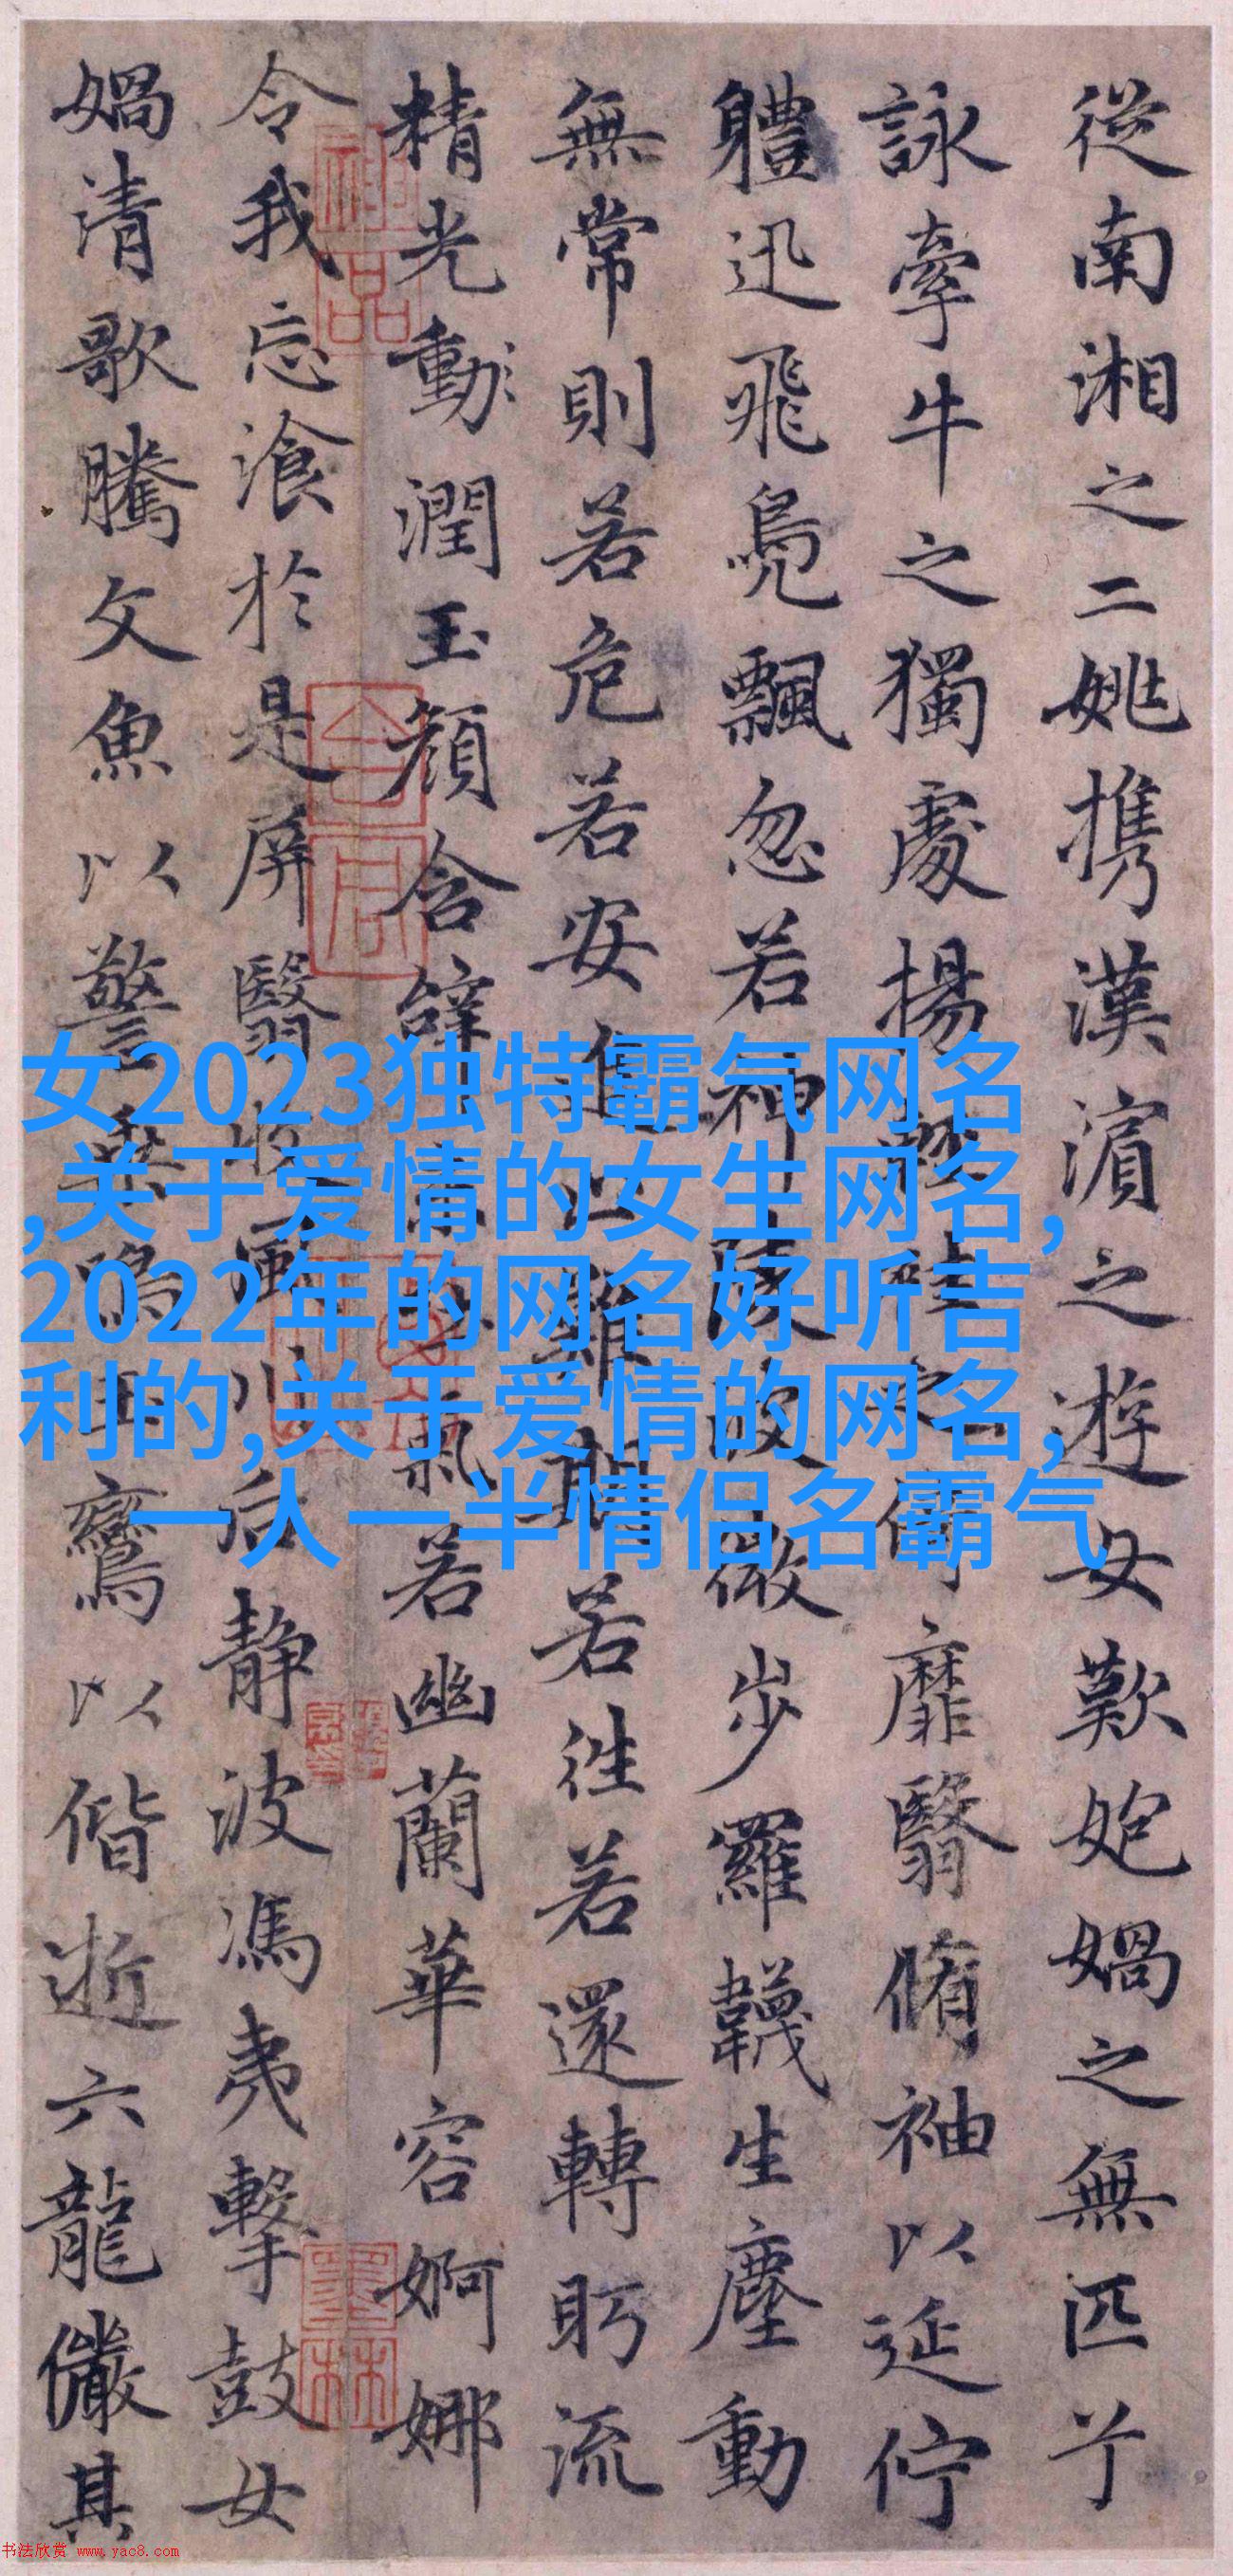 從南湘之二姚攜漢濱之遊女歎
匏媧之無匹兮
詠牽牛之獨處揚
靡翳脩袖以延佇
軆迅飛鳧飄忽若神陵波微步羅韈生塵動
無常則若危若安進止難期若往若還轉眄流
精光動潤玉顏含辭未吐氣若幽蘭華容婀娜
令我忘湌於是屏翳收風川后静波馮夷擊鼓女
媧清歌騰文魚以警乗鳴玉鸞以偕逝六龍儼其
女2023独特霸气网名
,关于爱情的女生网名,
2022年的网名好听吉
利的,关于爱情的网名,
一人一半情侣名霸气
书法欣赏 www.yac8.com